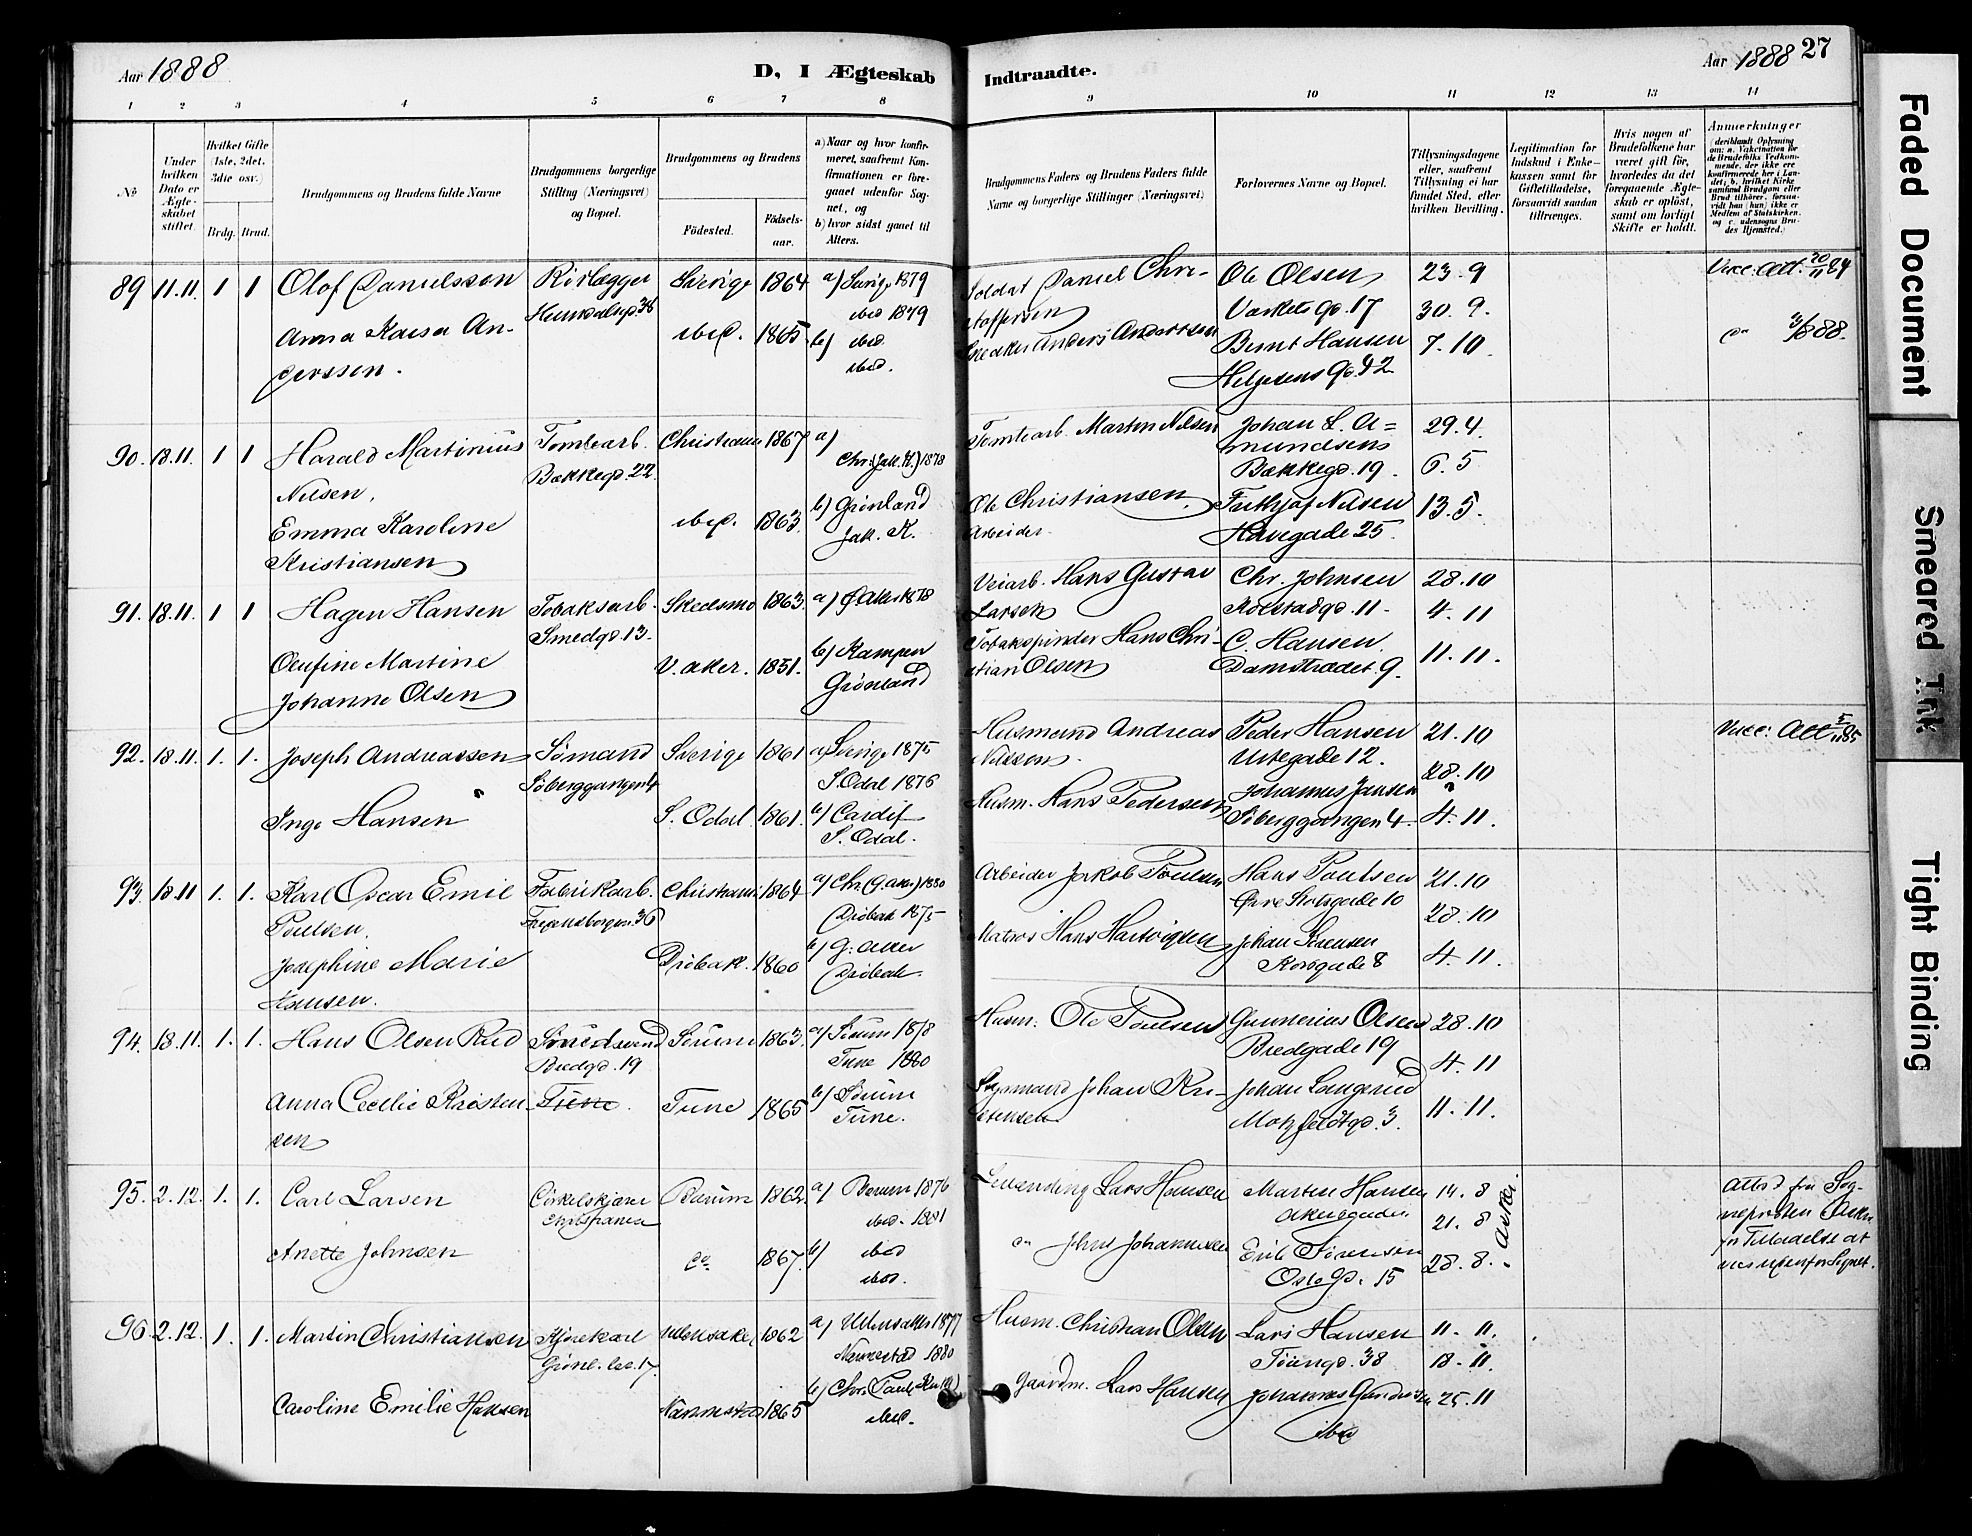 Aar 1888
D, I Ægteskab
Indtraadte.
Aar 1888 27
1 2 3 4 5 6 7 8 9 10 11 12 13 14
No
Under hvilken Dato er Ægteskabet stiftet.
Hvilket Gifte (1ste, 2det, 3die osv.)
Brdg. Brud.
Brudgommens og Brudens fulde Navne
Brudgommens borgerlige Stilling (Næringsvei) og Bopæl.
Brudgommens og Brudens
Fødested.
Fødsels-aar.
a) Naar og hvor konfirmeret, saafremt Konfirmationen er foregaaet udenfor Sognet, og
b) hvor sidst gaaet til Alters.
Brudgommens Faders og Brudens Faders fulde Navne og borgerlige Stillinger (Næringsvei)
Forlovernes Navne og Bopæl.
Tillysningsdagene eller, saafremt Tillysning ei har fundet Sted, efter hvilken Bevilling.
Legitimation for Indskud i Enkekassen samt for Giftetilladelse, forsaavidt saadan tiltrænges.
Hvis nogen af Brudefolkene har været gift før, hvorledes da det foregaaende Ægteskab er opløst, samt om lovligt Skifte er holdt.
Anmerkninger
89 11.11. 1 1 Olof Danielsson
Rørlægger
Sverige 1864 a) Sverige 1879
ibid 1879
Anna Kaisa Anderssen.
ibid. 1865 b) ibid
ibid.
Soldat Daniel Christoffersen
Anders Anderssen
Ole Olsen
Værkets gd. 17
Bernt Hansen
Helgesens gd. 42
23.9
30.9.
7.10.
Vacc: Att.
90. 18.11. 1 1 Harald Martinius Nilsen.
Emma Karoline Kristiansen
Tomtearb.
Bakkegd. 22
Christiania 1867 a)
Chr. (Jak. K.) 1878
ibid. 1863 b) Grønland
Jak. K.
Tomtearb. Martin Nilsen
Ole Christiansen,
Arbeider
Johan L. Amundsen
Bakkegd. 19.
Frithjof Nilsen
Havegade 25.
29.4.
6.5
13.5.
91. 18.11. 1 1 Hagen Hansen
Olufine Martine
Johanne Olsen
Tobaksarb.
Smedgd. 13.
Skedsmo 1863. a) Ø. Aker 1878
V. aker. 1851. b) Kampen
Grønland
Veiarb. Hans Gustav Larsen
Tobakspinder Hans Christian Olsen
Chr. Johnsen
Rolstadgd. 11.
C. Hansen.
Damstrædet 9.
28.10
4.11
11.11.
92. 18.11. 1. 1. Joseph Andreassen
Inge Hansen
Sømand
Søberggangen 4
Sverige 1861 a) Sverige 1875
S. Odal 1876
S. Odal 1861. b) Cardif
S. Odal.
Husmand Andreas Nilsson.
Husm. Hans Pedersen
Peder Hansen
Urtegade 12.
Johannes Jansen
Søberggangen 4.
21.10
28.10
4.11.
Vacc: Att
93. 18.11 1. 1. Karl Oscar Emil Poulsen.
Josephine Marie Hansen.
Fabrikarb.
Christiania 1864 a) Chr. (G. aker) 1880
Drøbak 1875
Drøbak. 1860 b) G. aker
Drøbak.
Arbeider Jakob Poulsen
Matros Hans Hartvigsen
Hans Poulsen
Øvre Slotsgade 10
Johan Sørensen
Korsgade 8
21.10
28.10
4.11.
94. 18.11. 1. 1. Hans Olsen Rud
Anna Cecilie Kristensen
Smedsvend
Bredgd. 19
Tune.
Sørum 1863. a) Sørum 1878
Tune 1880
Tune 1865 b) Sørum
Tune.
Husm. Ole Poulsen
Johan Kristensen
Gunnerius Olsen
Bredgade 19
Johan Langerud
Motzfeldtgd. 3.
28.10
4.11
11.11.
95. 2.12. 1. 1. Carl Larsen
Anette Johnsen
Cirkelskjærer
Christiania
Bærum 1862. a) Bærum 1876
ibid. 1881
do 1867. b) ibid
ibid.
Lars Hansen
do Johannesen
Martin Hansen
Akersgaden
Erik Sørensen
Oslo gd. 15
14.8
21.8
28.8.
Asker.
96. 2.12. 1. 1. Martin Christiansen
Caroline Emilie Hansen
Kjørekarl
Grønl. 17.
Ullensaker 1862 a) Ullensaker 1877
Nannestad 1880
Nannestad 1865 b) Chr.
ibid.
Husm. Christian Olsen
Gaardm. Lars Hansen
Lars Hansen
Tøiengd. 38
Johannes
ibid
11.11.
18.11.
25.11
Faded Document
Smeared Ink
Tight Binding